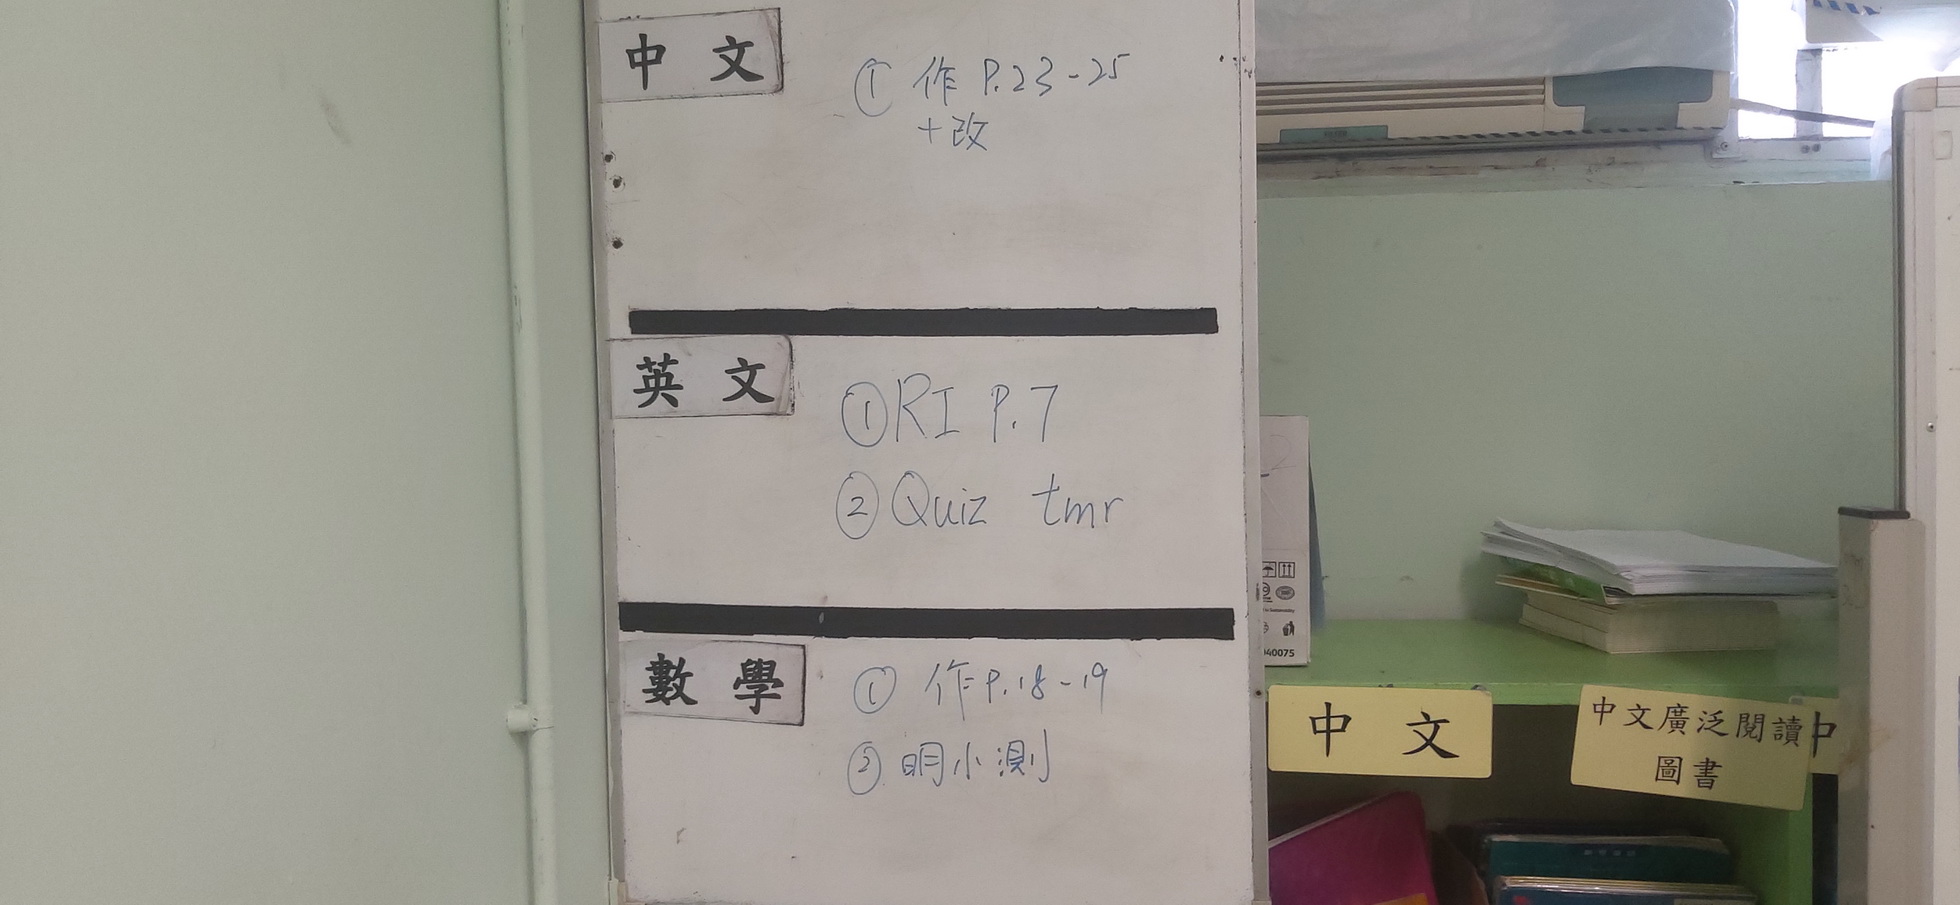 中 文
① 作 P.23-25
+改
英 文
① RI P.7
② Quiz tmr
數 學
① 作 P.18-19
② 明小測
040075
中 文
中文廣泛閱讀
圖書
中